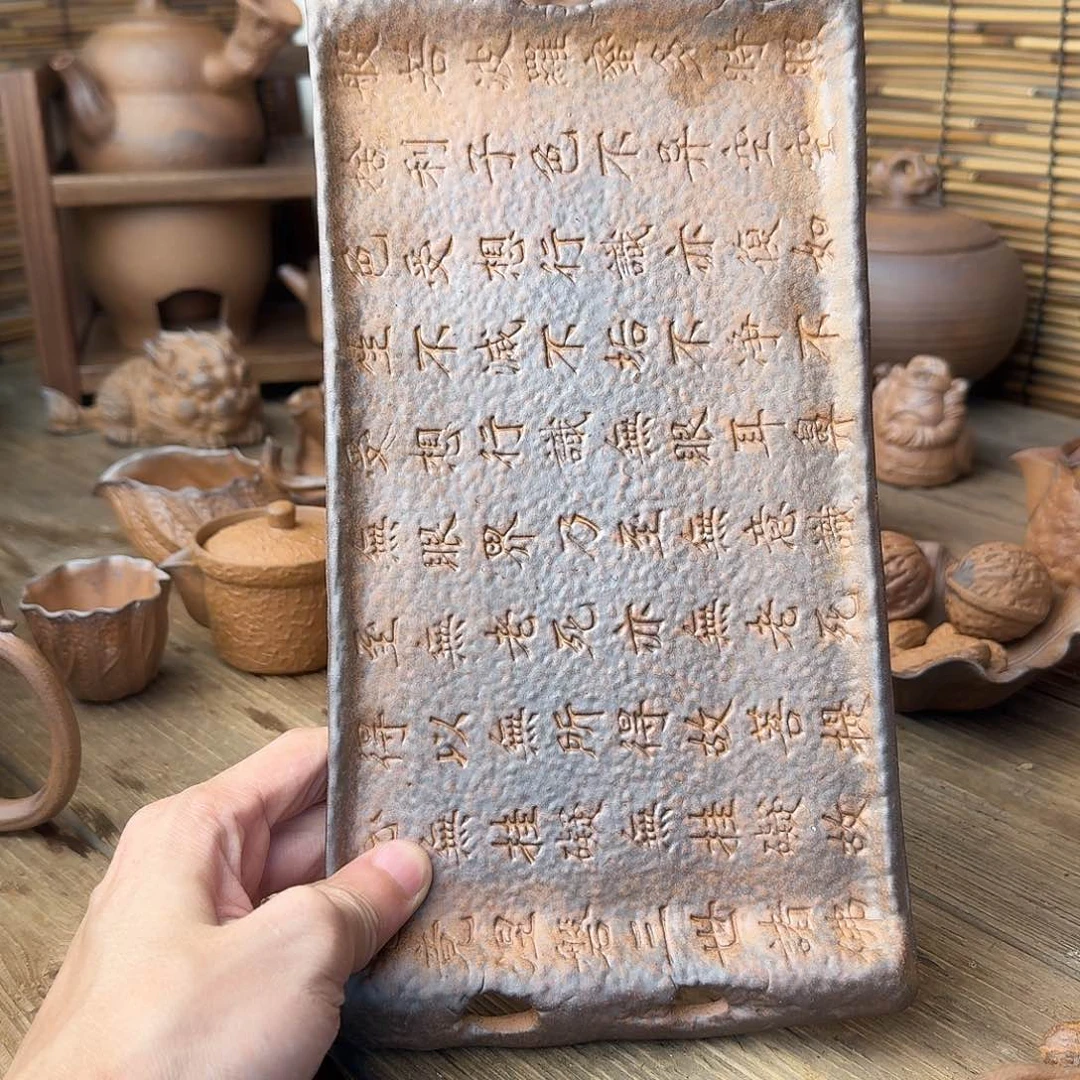 般若波羅蜜多時照
舍利子色不異空空
色受想行識亦復如
生不滅不垢不淨不
受想行識無眼耳鼻
無眼界乃至無意識
至無老死亦無老死
得以無所得故菩提
無挂礙無挂礙故
竟涅槃三世諸佛